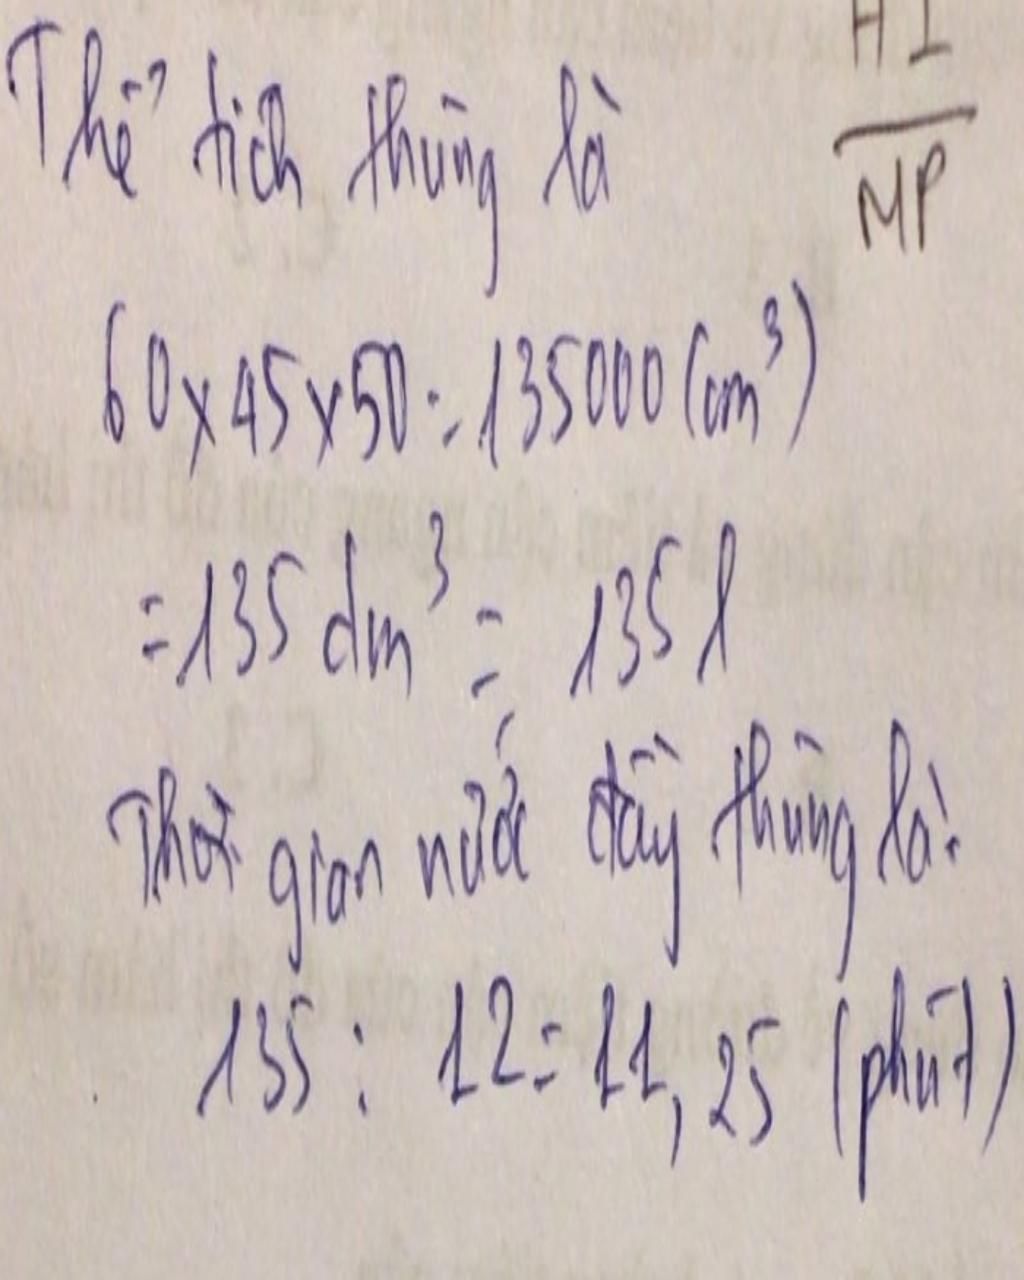 HI
MP
Thể tích thùng là
60x45x50 = 135000 (cm³)
= 135 dm³ = 135 l
Thời gian nước đầy thùng là:
135 : 12 = 11,25 (phút)